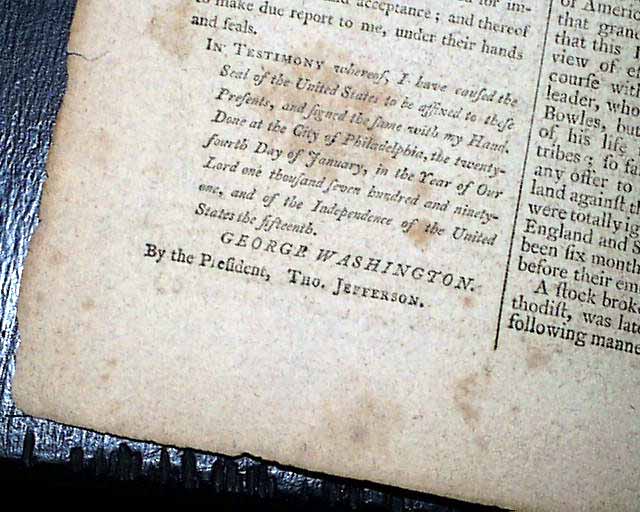 to make due report to me, under their hands
and ſeals.
In Testimony whereof, I have cauſed the
Seal of the United States to be affixed to theſe
Preſents, and ſigned the ſame with my Hand.
Done at the City of Philadelphia, the twenty-
fourth Day of January, in the Year of Our
Lord one thouſand ſeven hundred and ninety-
one, and of the Independence of the United
States the fifteenth.
GEORGE WASHINGTON.
By the Preſident, Tho. Jefferson.
of America
that grand
that this
view of
courſe with
leader, who
Bowles, but
of his life
tribes; ſo far
any offer to
land againſt th
were totally ig
England and S
been ſix month
before their em
A ſtock brok
thodiſt, was late
following manne